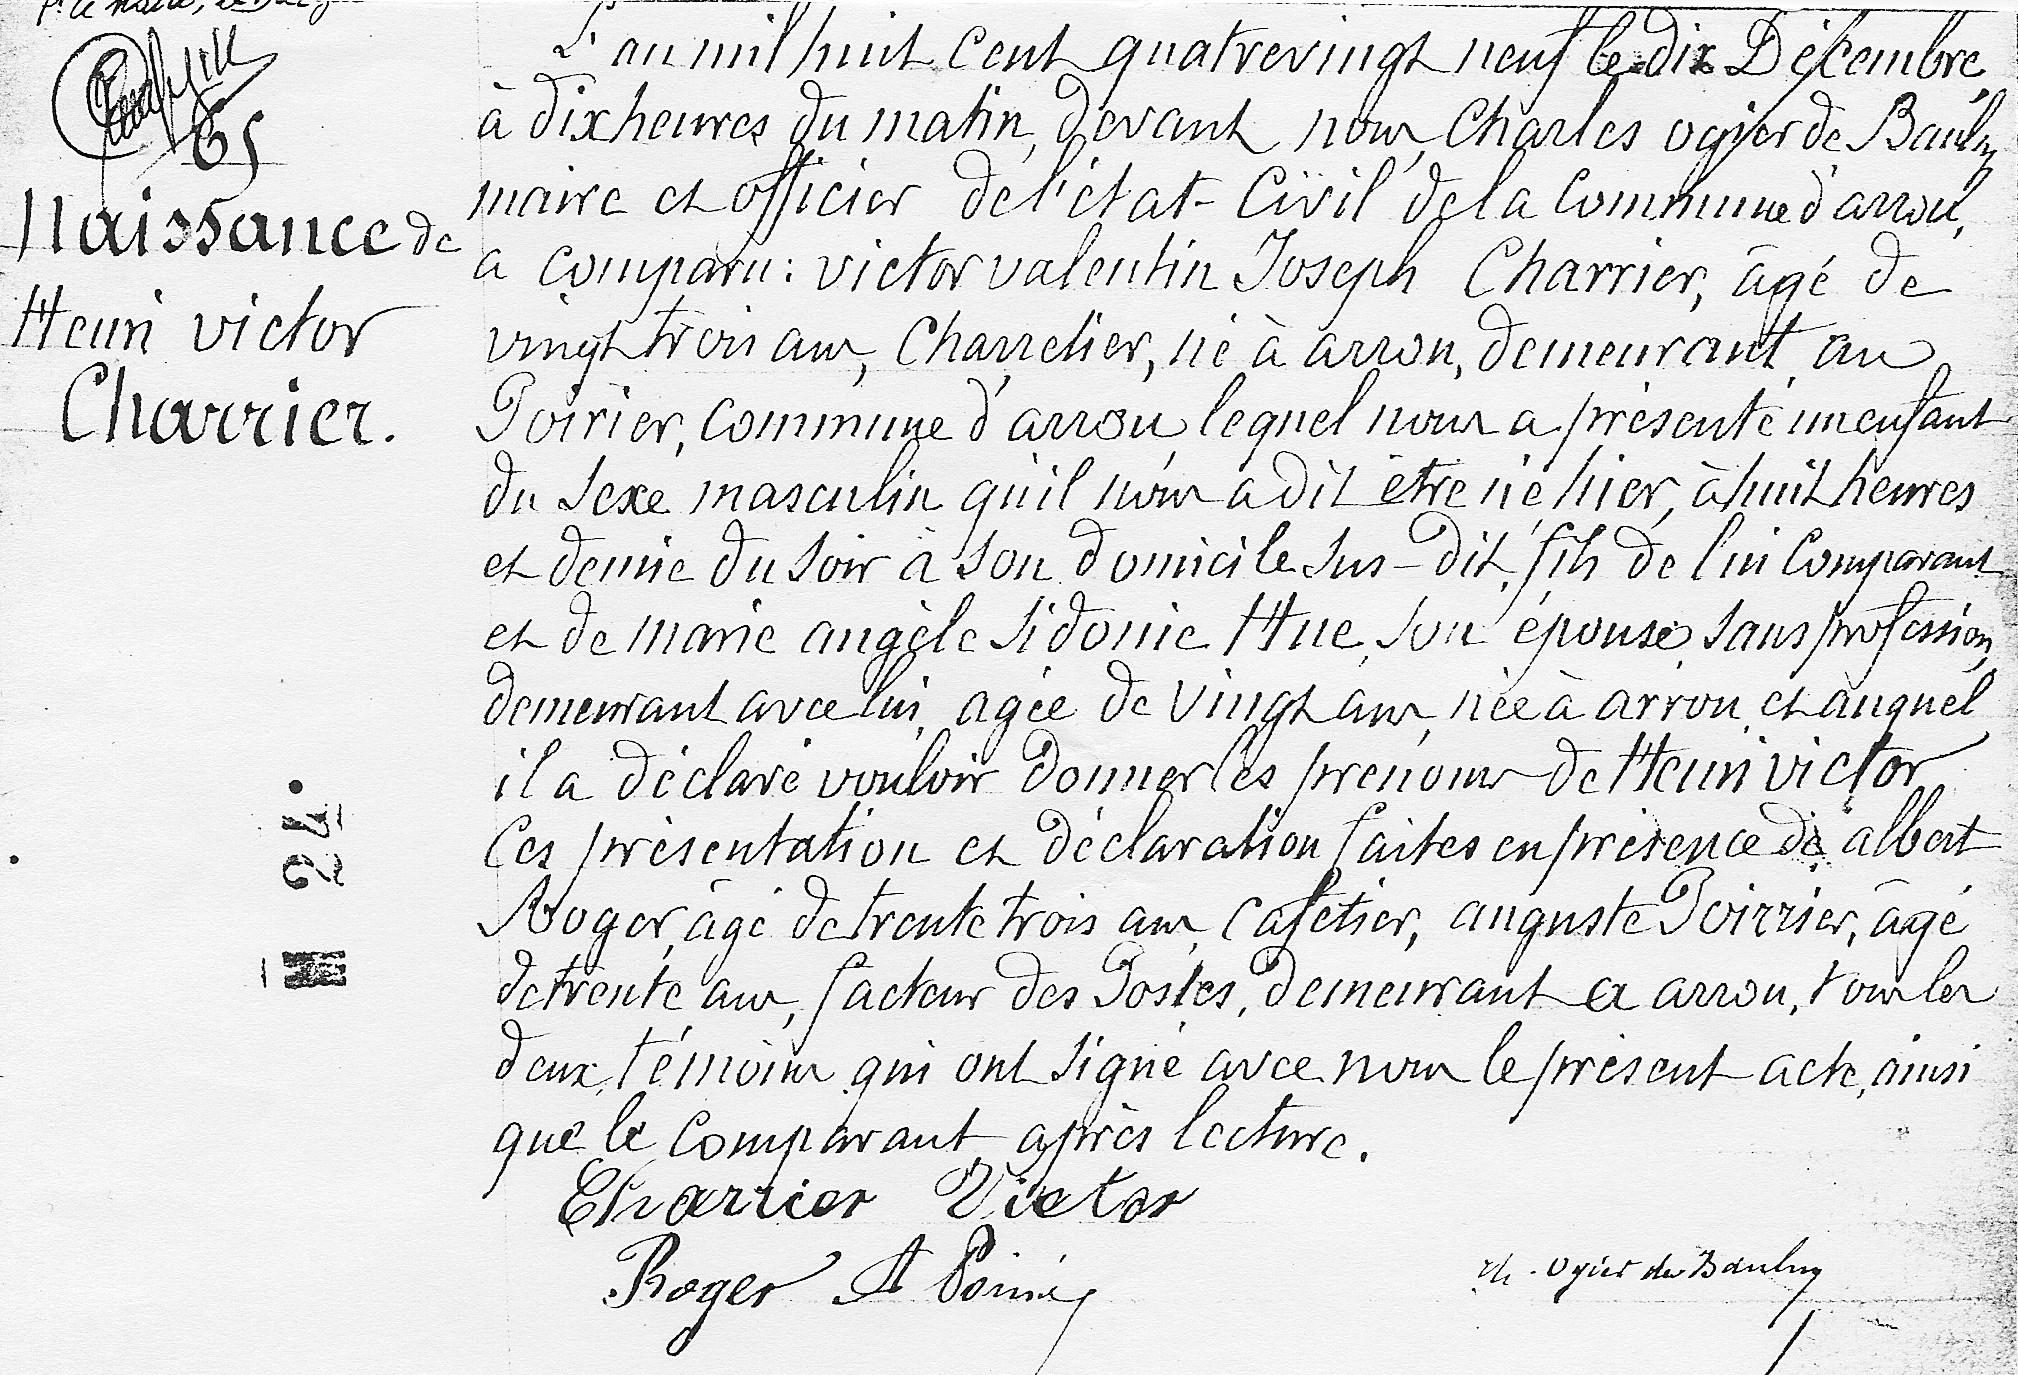 P. le Maire,
65
Naissance de
Henri victor
Charrier.
L'an mil huit cent quatrevingt neuf le dix Décembre,
à dix heures du matin, devant nous, Charles ogier de Baulny
maire et officier de l'état-Civil de la Commune d'arrou,
a comparu: victor valentin Joseph Charrier, âgé de
vingt trois ans, Charretier, né à arrou, demeurant au
Poirier, commune d'arrou lequel nous a présenté un enfant
du sexe masculin qu'il nous a dit être né hier, à huit heures
et demie du soir à son domicile sus-dit, fils de lui Comparant
et de marie angèle sidonie Hue, son épouse, sans profession,
demeurant avec lui, agée de vingt ans, née à arrou, et auquel
il a déclaré vouloir donner les prénoms de Henri victor
Ces présentation et déclaration faites en présence de albert
Roger, âgé de trente trois ans, Cafetier, auguste Poirrier, âgé
de trente ans, facteur des Postes, demeurant à arrou, tous les
deux témoins qui ont signé avec nous le présent acte, ainsi
que le comparant après lecture.
Charrier Victor
Roger A Poirrier
Ch. Ogier de Baulny